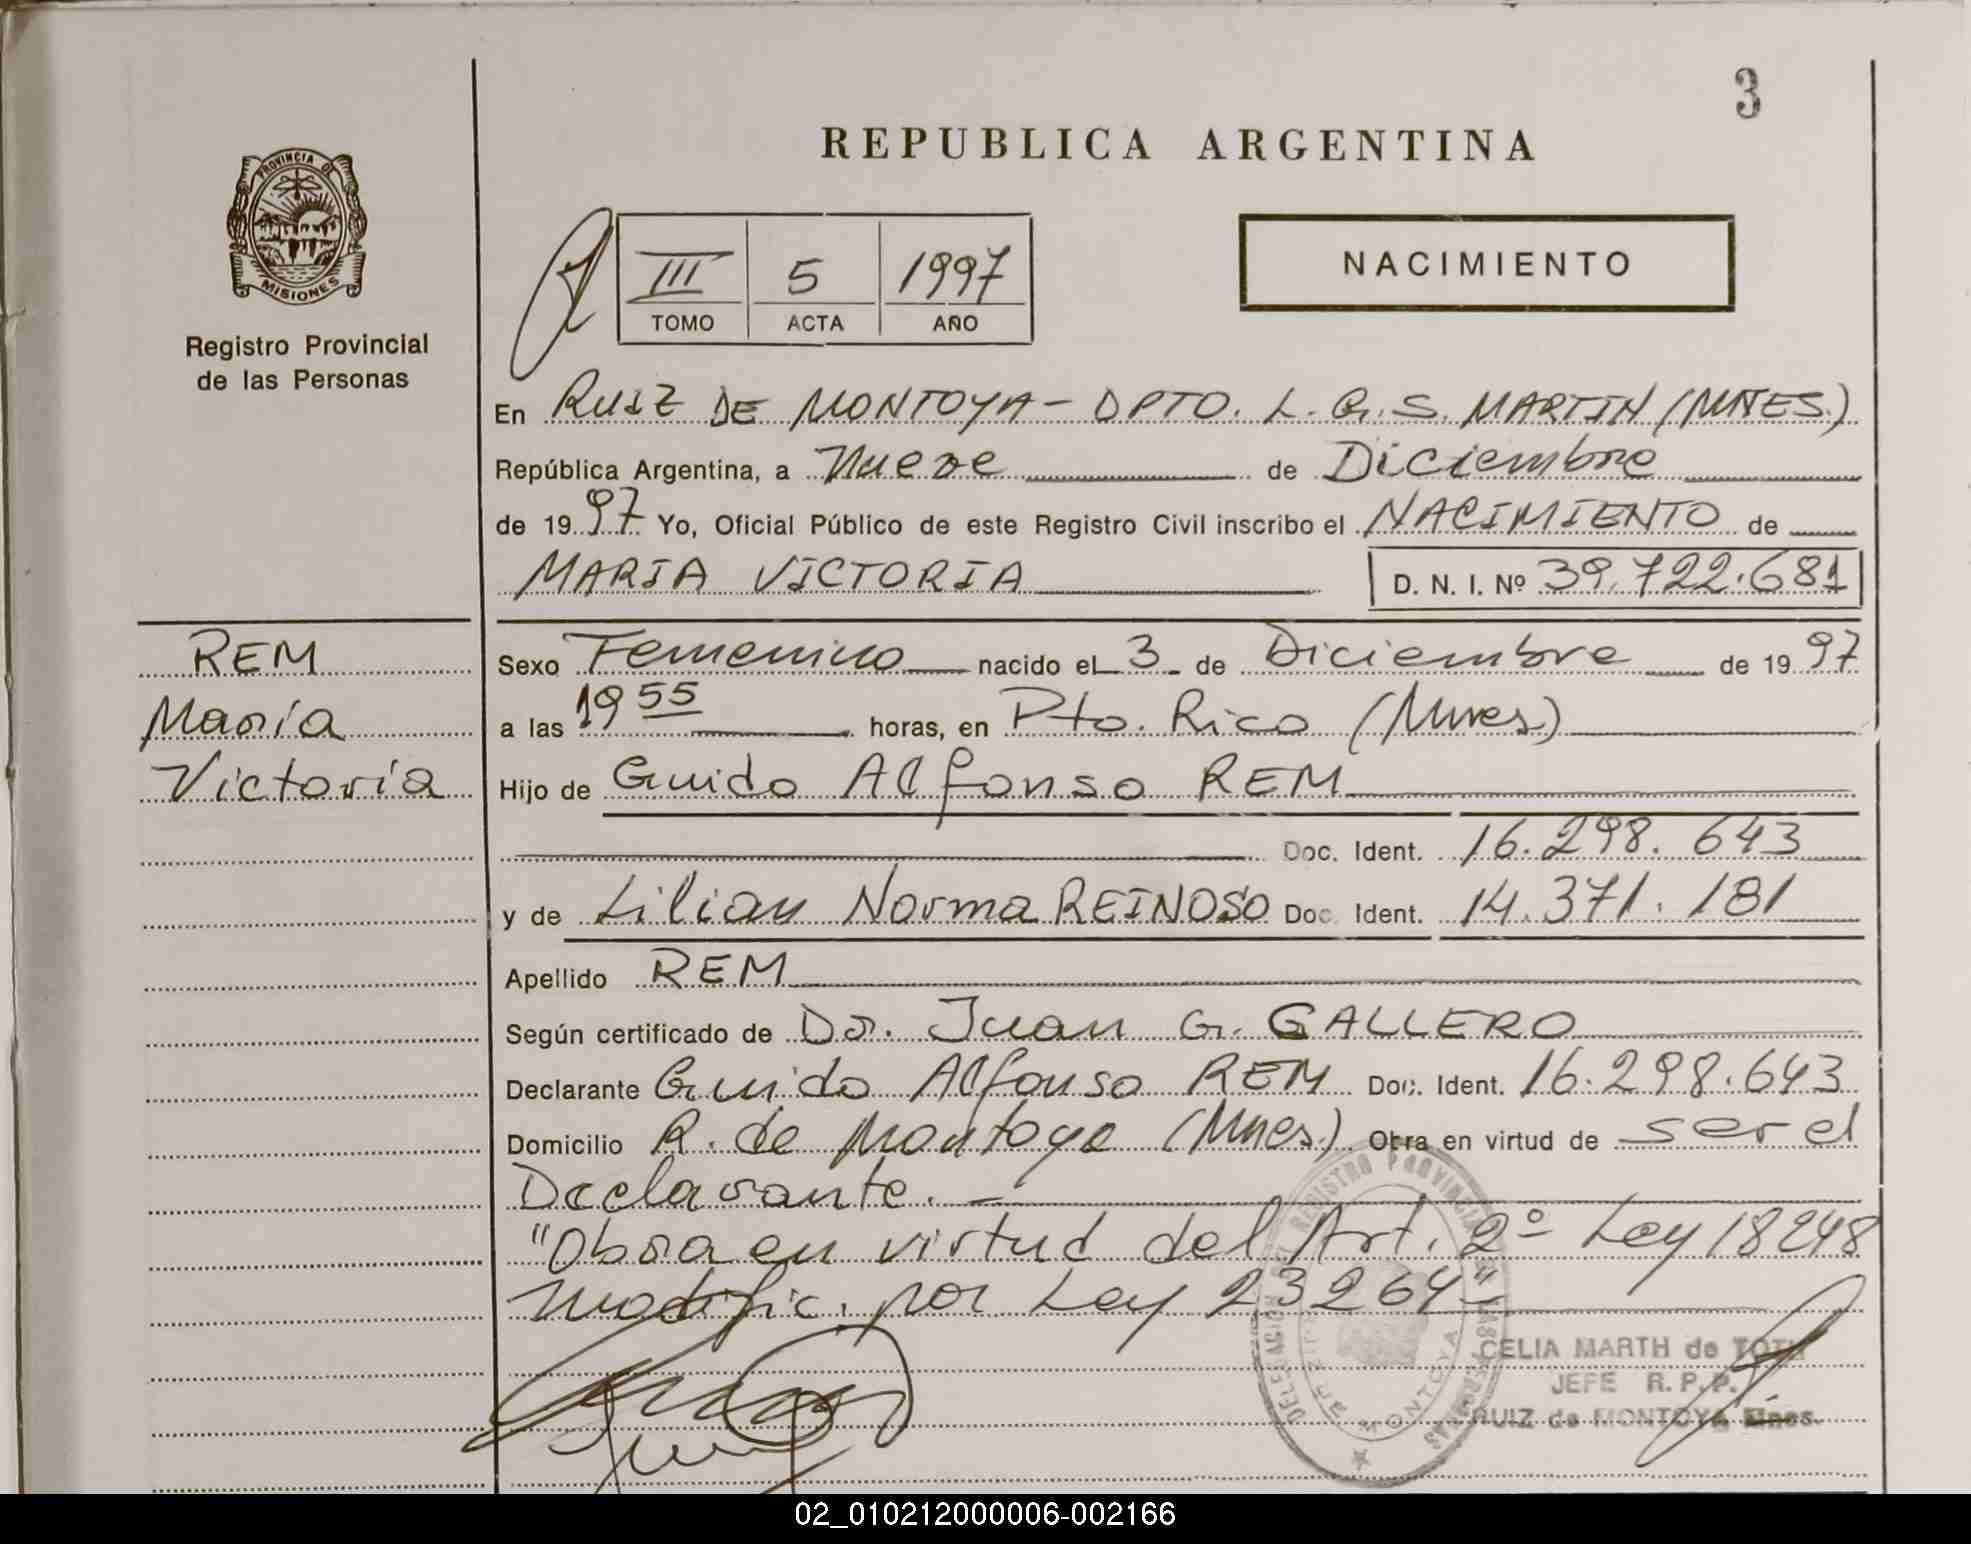 3
REPUBLICA ARGENTINA
PROVINCIA DE
MISIONES
Registro Provincial
de las Personas
III 5 1997
TOMO ACTA AÑO
NACIMIENTO
En RUIZ DE MONTOYA - DPTO. L. G. S. MARTIN (MNES.)
República Argentina, a Nueve de Diciembre
de 1997 Yo, Oficial Público de este Registro Civil inscribo el NACIMIENTO de
MARIA VICTORIA D. N. I. Nº 39.722.681
REM
María
Victoria
Sexo Femenino nacido el 3 de Diciembre de 1997
a las 19 55 horas, en Pto. Rico (Mnes)
Hijo de Guido Alfonso REM
Doc. Ident. 16.298.643
y de Lilian Norma REINOSO Doc. Ident. 14.371.181
Apellido REM
Según certificado de Dr. Juan G. GALLERO
Declarante Guido Alfonso REM Doc. Ident. 16.298.643
Domicilio R. de Montoya (Mnes.) Obra en virtud de ser el
Declarante. -
"Obra en virtud del Art. 2º Ley 18248
modific. por Ley 23264"
CELIA MARTH de TOTH
JEFE R. P. P.
RUIZ de MONTOYA Mnes.
MONTOYA
02_010212000006-002166